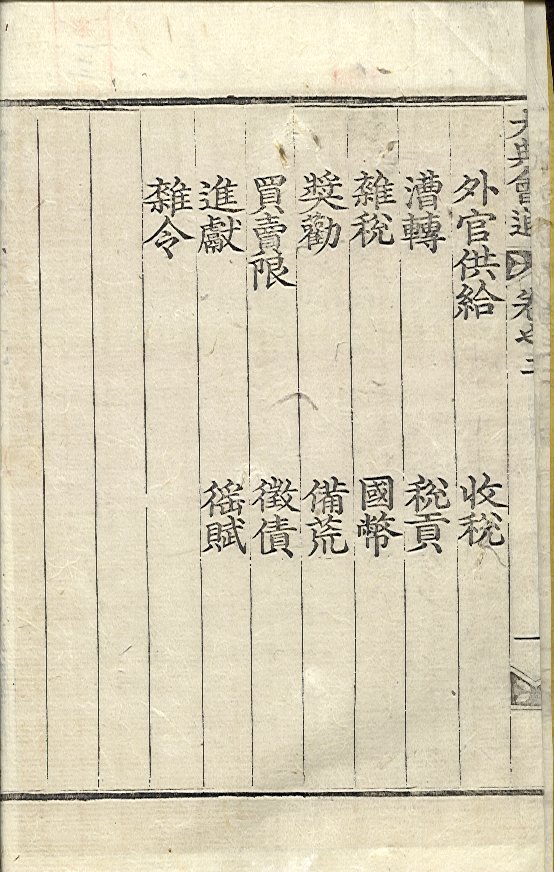 大典會通 卷之二 一
外官供給 收稅
漕轉 稅貢
雜稅 國幣
奬勸 備荒
買賣限 徵債
進獻 徭賦
雜令